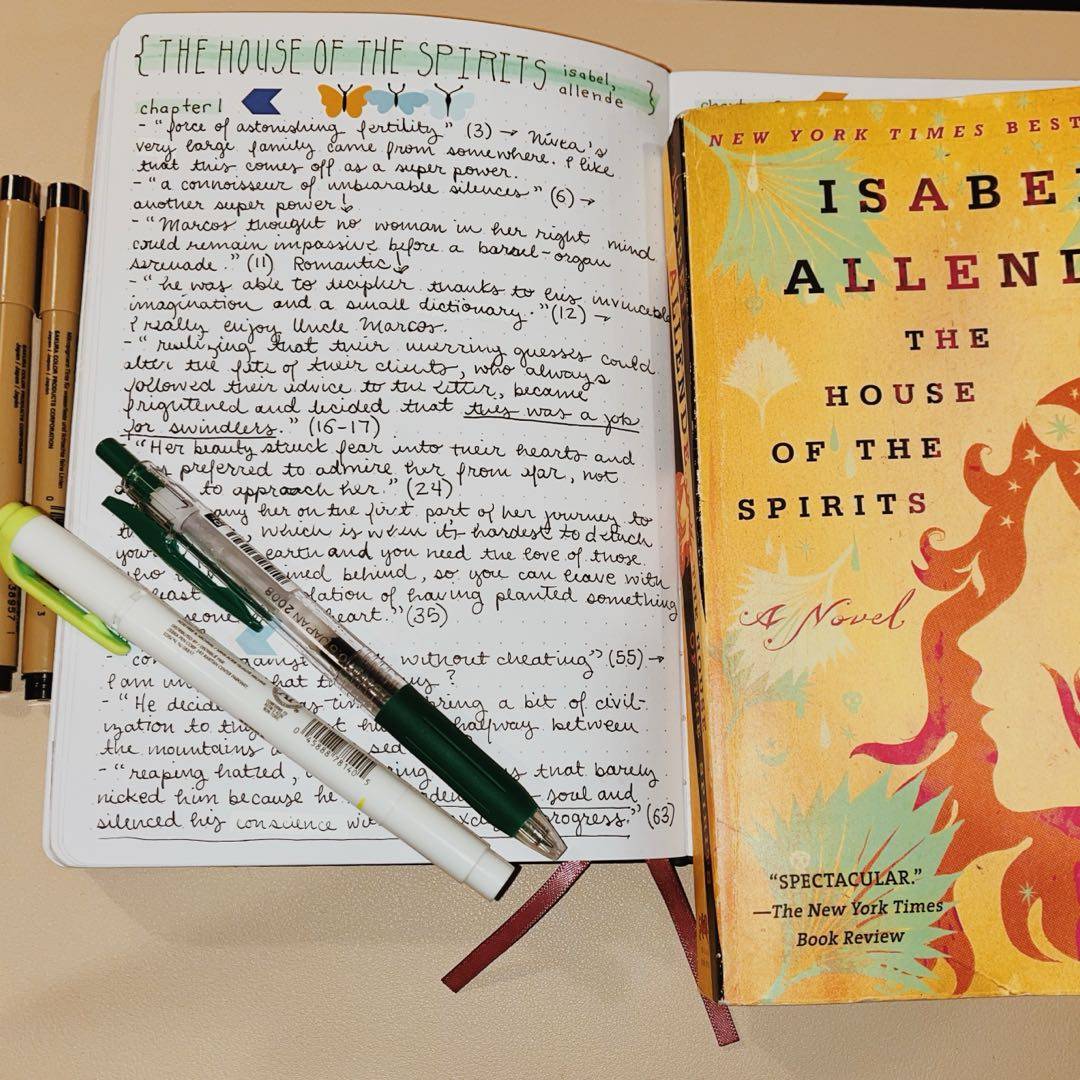 { THE HOUSE OF THE SPIRITS isabel, allende }
chapter 1
- "force of astonishing fertility" (3) → Nívea's
very large family came from somewhere. I like
that this comes off as a super power.
- "a connoisseur of unbearable silences" (6) →
another super power!
- "Marcos thought no woman in her right mind
could remain impassive before a barrel-organ
serenade." (11) Romantic!
- "he was able to decipher thanks to his invincible
imagination and a small dictionary." (12) →
I really enjoy Uncle Marcos.
- "realizing that their unerring guesses could
alter the fate of their clients, who always
followed their advice to the letter, became
frightened and decided that this was a job
for swindlers." (16-17)
- "Her beauty struck fear into their hearts and
preferred to admire her from afar, not
to approach her." (24)
any her on the first part of her journey to
which is when it's hardest to detach
earth and you need the love of those
behind, so you can leave with
of having planted something
heart." (35)
without cheating" (55) →
I am
?
- "He decided bring a bit of civil-
ization to halfway between
the mountains
- "reaping hatred, that barely
nicked him because he soul and
silenced his conscience progress." (63)
NEW YORK TIMES BEST
ISABE
ALLEND
THE
HOUSE
OF THE
SPIRITS
A Novel
"SPECTACULAR."
—The New York Times
Book Review
SAKURA COLOR PRODUCTS CORPORATION
Japan / Japon
JAPAN 2008